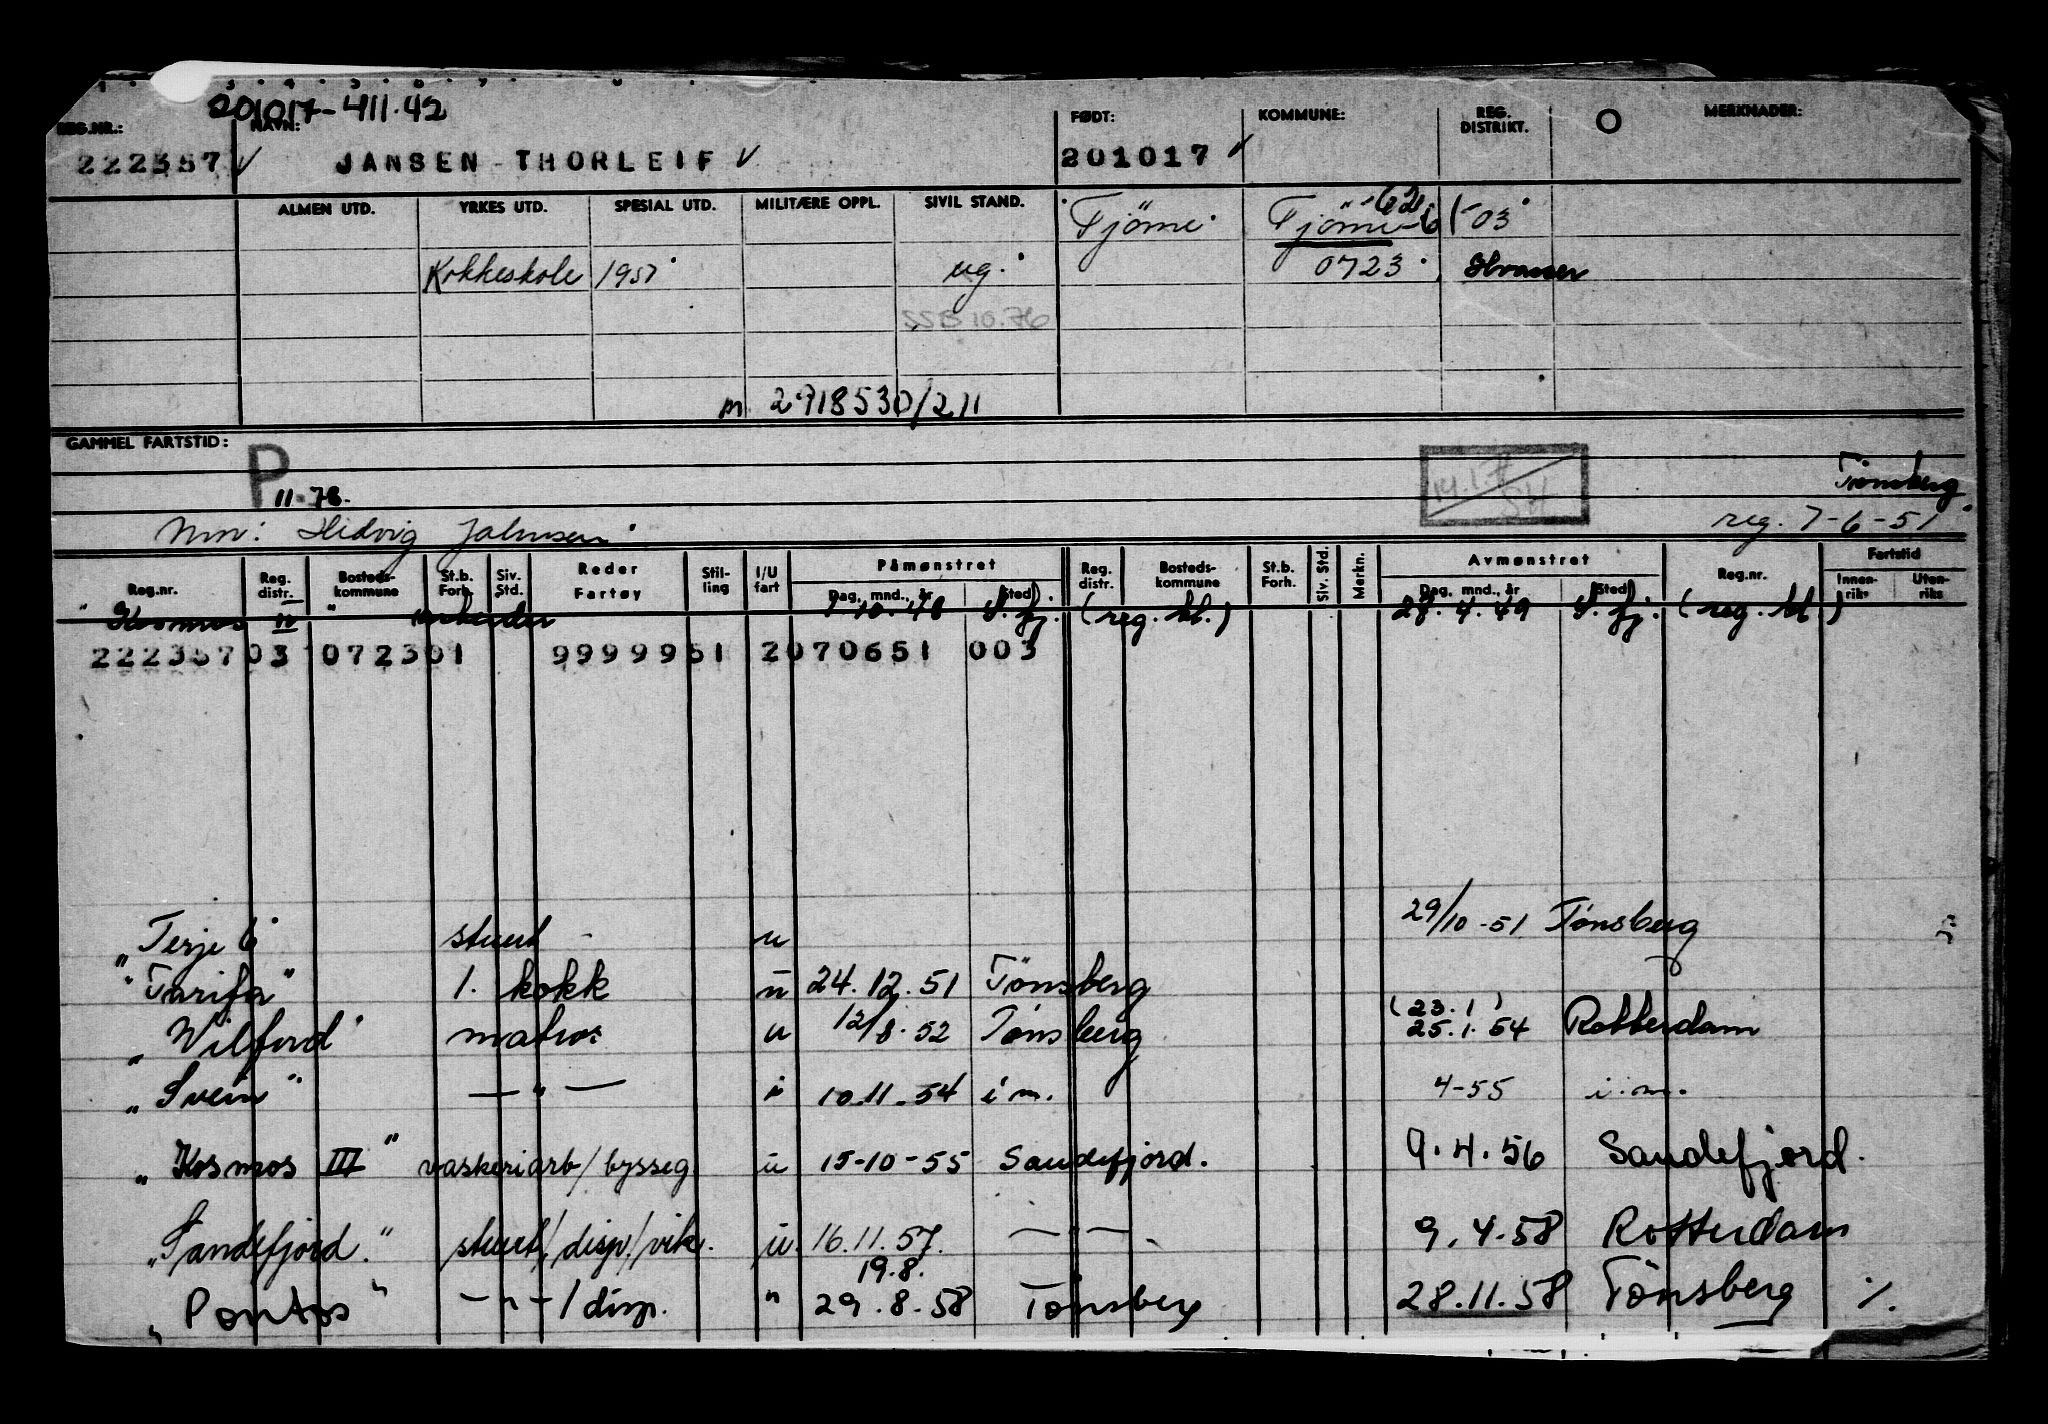 201017-411.42
REG.NR.: NAVN: FØDT: KOMMUNE: REG. DISTRIKT. MERKNADER:
222357 JANSEN THORLEIF 201017
ALMEN UTD. YRKES UTD. SPESIAL UTD. MILITÆRE OPPL. SIVIL STAND. Tjöme Tjöme 03
Kokkeskole 1951 ug. 0723
SSB 10.76
m 2918530/211
GAMMEL FARTSTID:
P 11-78. Tönsberg
Mm: Hedvig reg. 7-6-51
Påmønstret Avmønstret Fartstid
Reg.nr. Reg. distr. Bosteds-kommune St.b. Forh. Siv. Std. Reder Fartøy Stil-ling I/U fart Dag, mnd., år Sted Reg. distr. Bosteds-kommune St.b. Forh. Siv. Std. Merkn. Dag, mnd., år Sted Reg.nr. Innen-riks Uten-riks
"Kosmos IV" arbeider 10.48 S.fj. (reg. bl.) 28.4.49 S.fj. (reg. bl.)
222357 03 072301 9999951 2070651 003
"Terje 6" stuert u 29/10-51 Tönsberg
"Tarifa" 1. kokk u 24.12.51 Tönsberg
(23.1)
"Wilford" matros u 12/8.52 Tönsberg 25.1.54 Rotterdam
"Svein" — " — i 10.11.54 i m. 4-55 i.m.
"Kosmos III" vaskeriarb/bysseg. u 15-10-55 Sandefjord. 9.4.56 Sandefjord.
"Sandefjord." stuert/disp/vik. u. 16.11.57. — " — 9.4.58 Rotterdam
19.8.
"Pontos" — " — / disp. " 29.8.58 Tönsberg 28.11.58 Tönsberg